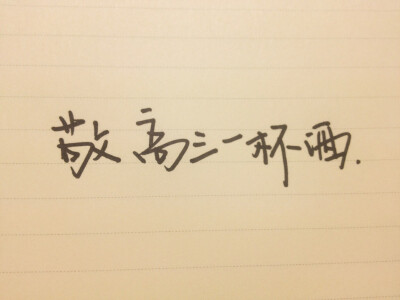 敬高三一杯酒.